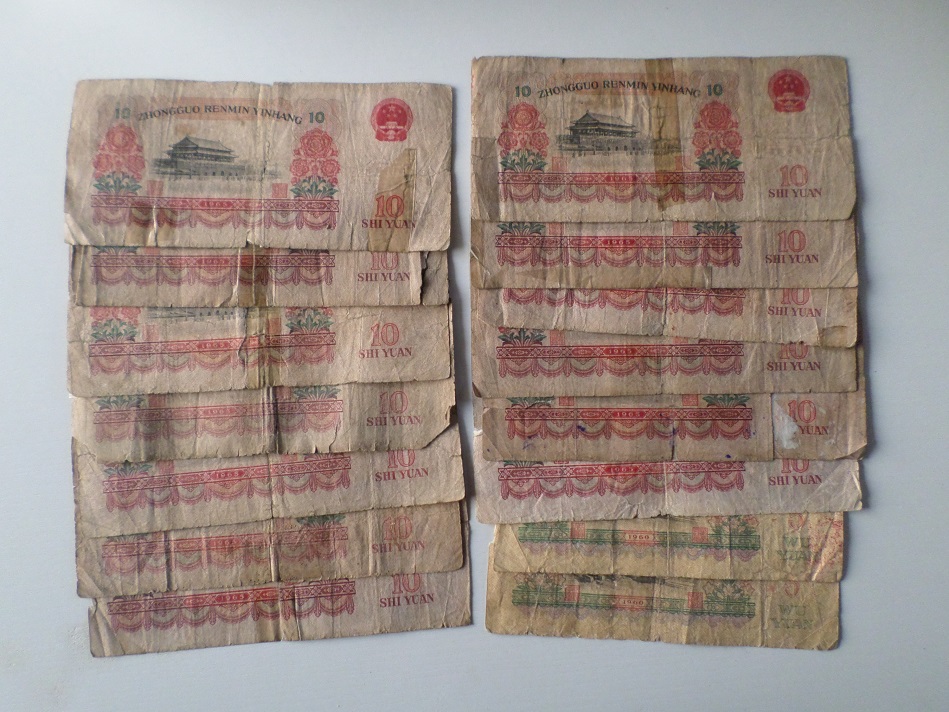 10 ZHONGGUO RENMIN YINHANG 10
1965
10
SHI YUAN
10
SHI YUAN
1965
10
SHI YUAN
1965
10
SHI YUAN
1965
10
SHI YUAN
1965
10
SHI YUAN
1965
10
SHI YUAN
10 ZHONGGUO RENMIN YINHANG 10
10
SHI YUAN
1965
10
SHI YUAN
10
SHI YUAN
1965
10
SHI YUAN
1965
10
YUAN
1965
10
SHI YUAN
1960
WU
YUAN
1960
WU
YUAN